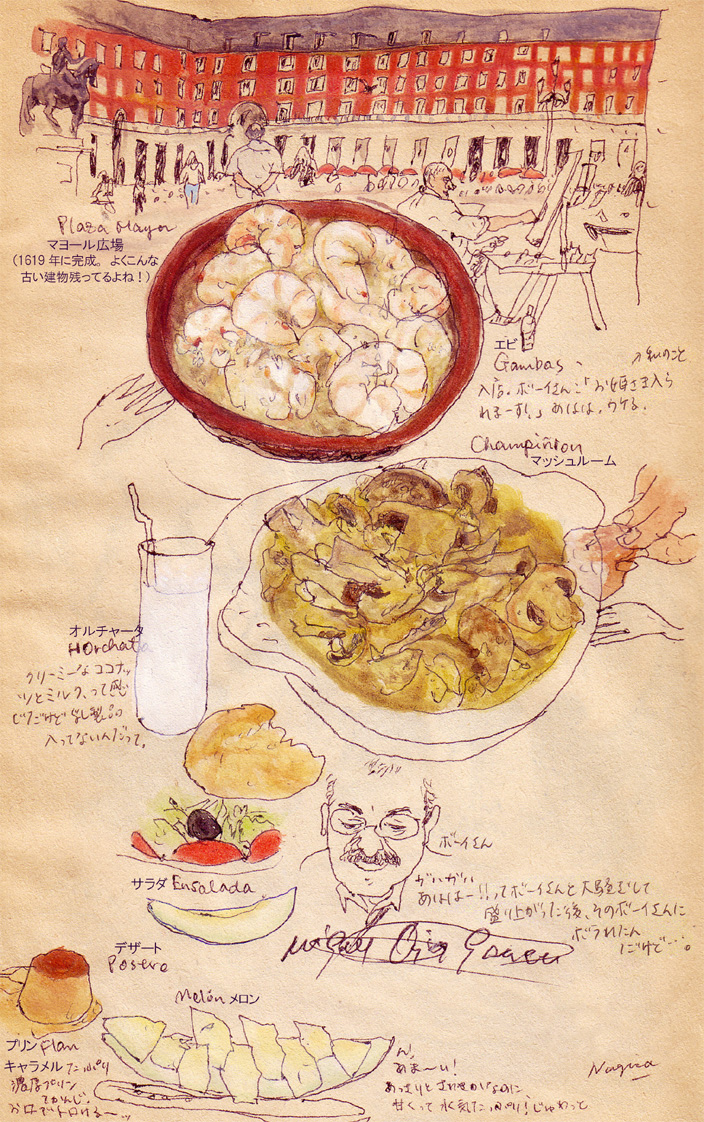 Plaza Mayor
マヨール広場
(1619年に完成。よくこんな
古い建物残ってるよね!)
エビ
Gambas
↗私のこと
入店。ボーイさんに「お姫さま入ら
れまーす!」あはは、ウケる。
Champiñon
マッシュルーム
オルチャータ
Horchata
クリーミーなココナッ
ツとミルク、って感
じだけど乳製品の
入ってないんだって。
ボーイさん
サラダ Ensalada
ガハガハ
あはは〜!!ってボーイさんと大騒ぎして
盛り上がった後、そのボーイさんに
ボラれたん
だけど…。
Miguel
デザート
Postre
Melón メロン
プリン Flan
キャラメルたっぷり
濃厚プリン
てかんじ。
お口でトロける〜ッ
ん、
あま〜い!
あっさりと
甘くって水気たっぷり!じゅわっと